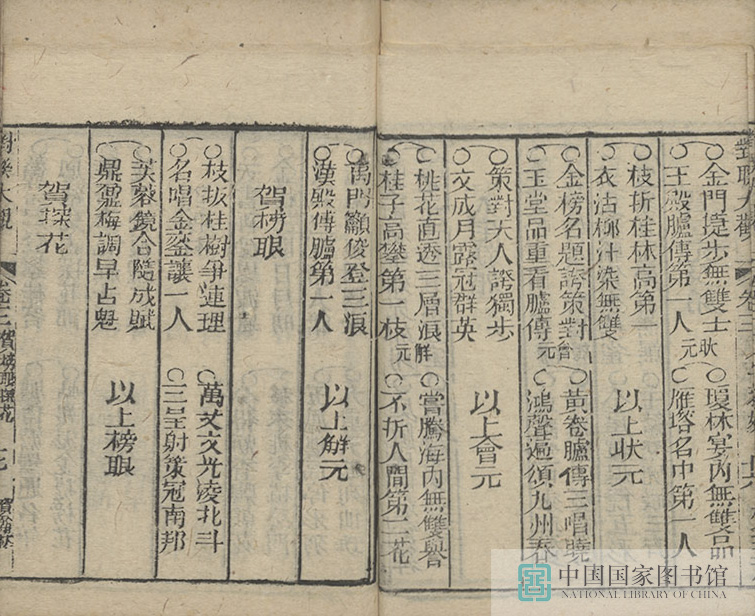 對聯大觀 卷三
○金門踱步無雙士狀 ○瓊林宴內無雙品
○王殿臚傳第一人元 ○雁塔名中第一人
○枝折桂林高第一
○衣沾柳汁染無雙 以上状元
○金榜名題誇策對會 ○黃卷臚傳三唱曉
○玉堂品重看臚傳元 ○鴻聲遍頌九州春
○策對天人誇獨步
○文成月露冠群英 以上會元
○桃花直透三層浪解 ○嘗騰海內無雙譽
○桂子高攀第一枝元 ○不折人間第二花
○禹門籲俊登三浪
○漢殿傳臚第一人 以上解元
賀榜眼
○枝扳桂樹爭連理 ○萬丈文光凌北斗
○名唱金鑾讓一人 ○三呈射策冠南邦
○芙蓉鏡合隨成賦
○鼎鹽梅調早占魁 以上榜眼
賀探花
對聯大觀 卷三賀榜眼探花
中国国家图书馆
NATIONAL LIBRARY OF CHINA